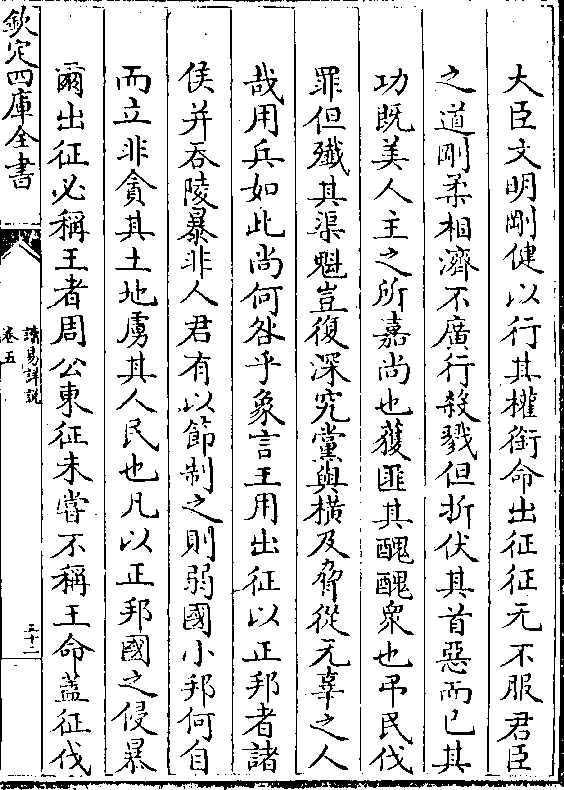 大臣文明剛健以行其權銜命出征征无不服君臣
之道剛柔相濟不廣行殺戮但折伏其首惡而已其
功既美人主之所嘉尚也獲匪其醜醜衆也弔民伐
罪但殲其渠魁豈復深究黨與橫及脅從无辜之人
哉用兵如此尚何咎乎象言王用出征以正邦者諸
侯并吞陵暴非人君有以節制之則弱國小邦何自
而立非貪其土地虜其人民也凡以正邦國之侵暴
爾出征必稱王者周公東征未嘗不稱王命蓋征伐
欽定四庫全書
讀易詳說
卷五
三十二